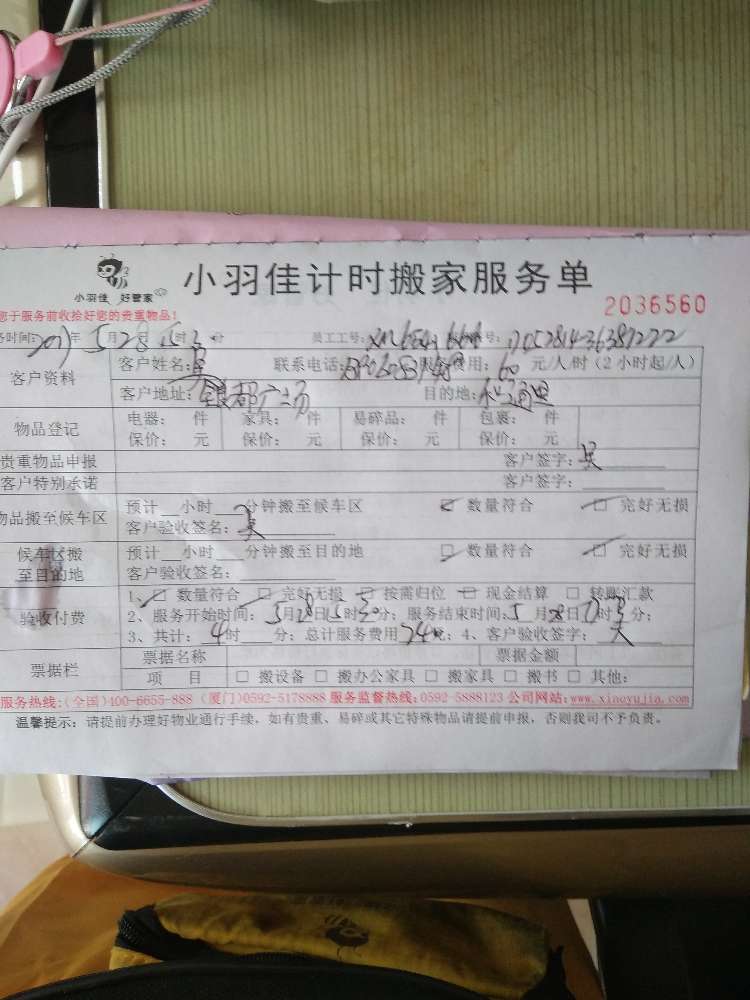 小羽佳 好管家
小羽佳计时搬家服务单
2036560
您于服务前收拾好您的贵重物品!
务时间: 2017年5月28日15时 分 员工工号: 号:
客户资料 客户姓名:吴 联系电话: 服务费用:60 元/人/时(2小时起/人)
客户地址: 都广场 目的地:
物品登记 电器: 件 家具: 件 易碎品: 件 包裹: 件
保价: 元 保价: 元 保价: 元 保价: 元
贵重物品申报 客户签字:吴
客户特别承诺 客户签字:
物品搬至候车区 预计__小时__分钟搬至候车区 数量符合 完好无损
客户验收签名:吴
候车区搬至目的地 预计__小时__分钟搬至目的地 数量符合 完好无损
客户验收签名:
验收付费 1、 数量符合 完好无损 按需归位 现金结算 □ 转账汇款
2、服务开始时间:5月28日15时30分; 服务结束时间:5月28日 时 分;
3、共计: 4时 分; 总计服务费用 ; 4、客户验收签字:吴
票据栏 票据名称 票据金额
项 目 □ 搬设备 □ 搬办公家具 □ 搬家具 □ 搬书 □ 其他:
服务热线:(全国)400-6655-888 (厦门)0592-5178888 服务监督热线:0592-5888123 公司网站:www.xiaoyujia.com
温馨提示: 请提前办理好物业通行手续,如有贵重、易碎或其它特殊物品请提前申报,否则我司不予负责。